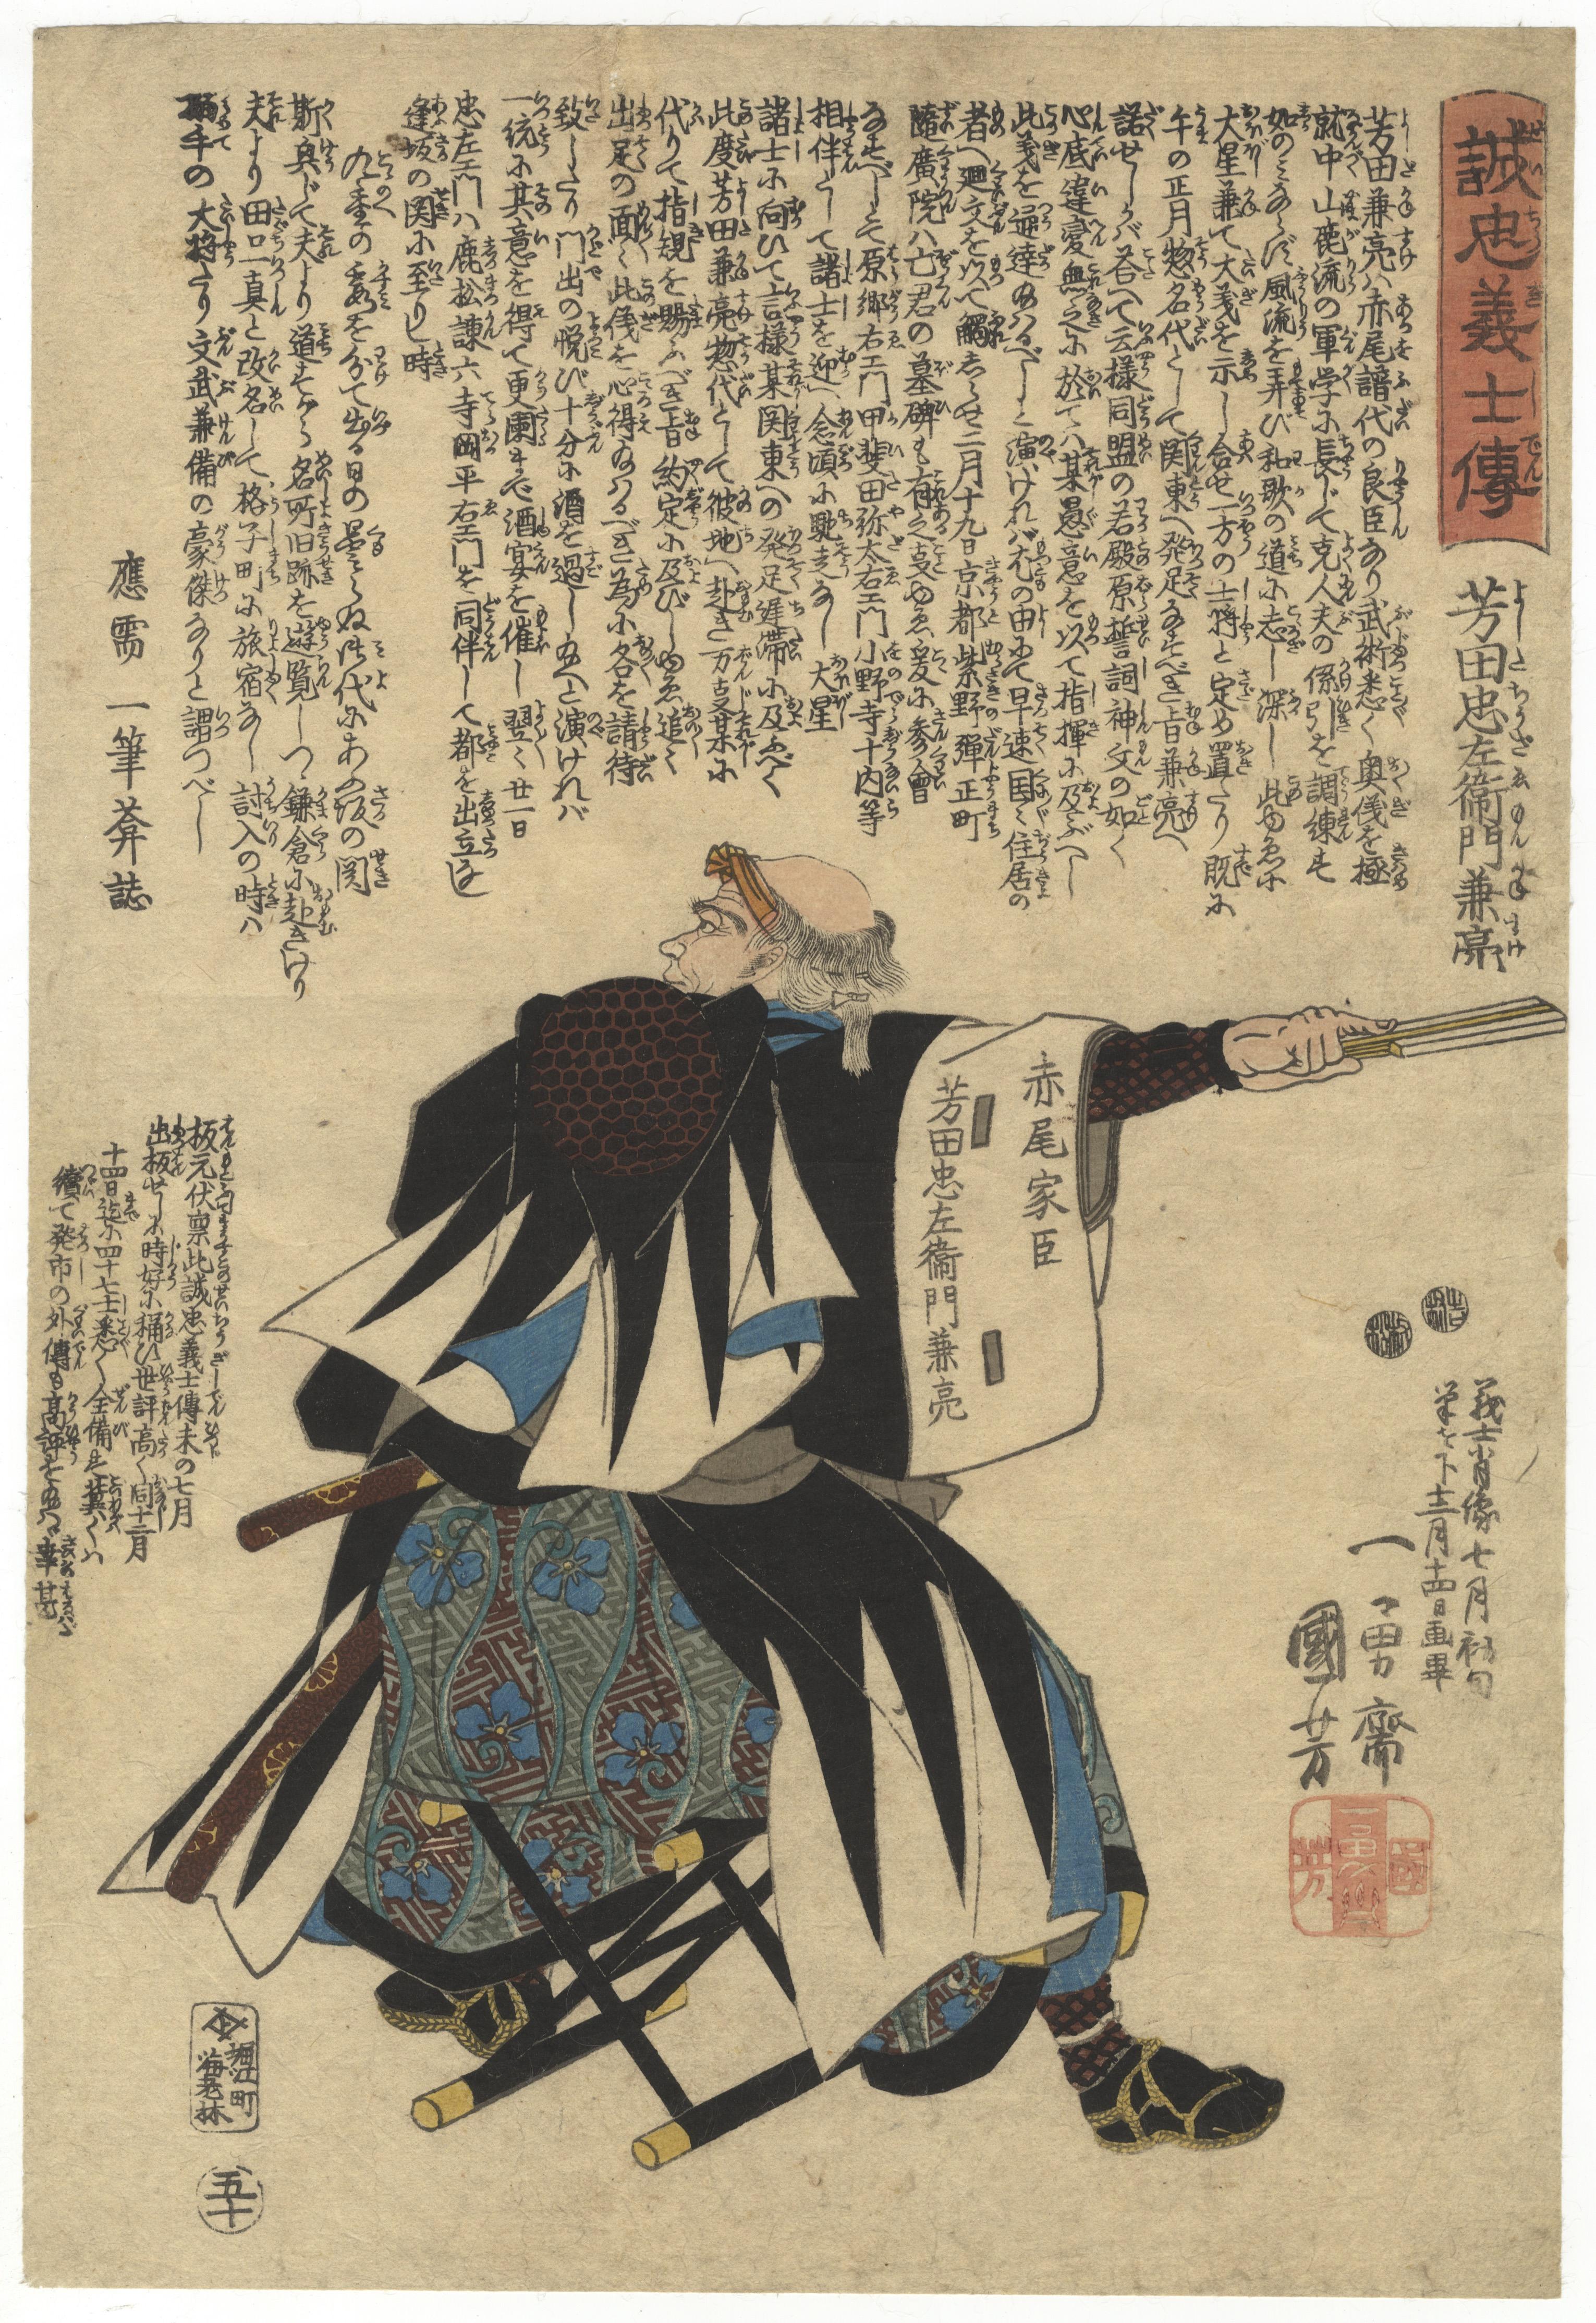 誠忠義士傳
芳田忠左衞門兼亮
芳田兼亮ハ赤尾譜代の良臣なり武術悉く奥儀を極
就中山鹿流の軍学に長じて克人夫の係引を調練す
如のみならず風流を弄び和歌の道に志し深し此ゆゑに
大星兼て大義を示し合せ一方の士将と定め置たり既に
午の正月惣名代として関東へ発足なすべき旨兼亮へ
諾せしかバ答へて云様同盟の若殿原誓詞神文の如く
心底違変無之に於てハ某愚意を以て指揮に及ぶべし
此義を通達ゆハるべしと演けれバ尤の由にて早速国々住居の
者へ廻文を以て觸しらせ二月十九日京都紫野弾正町
隨廣院ハ亡君の墓碑も有之支ゆゑ爰に参會
なすべしとて原郷右エ門甲斐田弥太右エ門小野寺十内等
相伴して諸士を迎へ念頃に馳走なし大星
諸士に向ひて言様某関東への発足遅滞に及ぶべく
此度芳田兼亮惣代として彼地へ赴き万支某に
代りて指規を賜ふべき旨約定に及びしゆゑ追々
出足の面々此儀を心得ゐハるべき為に各を請待
致したり門出の悦び十分に酒を過し玉へと演けれバ
一統に其意を得て更闌まで酒宴を催し翌々廿一日
忠左エ門ハ鹿松諌六寺岡平右エ門を同伴して都を出立なし
逢坂の関に至りし時
九重の
を分て出る日の曇らぬ御代にあふ坂の関
斯奥じて夫より道すがら名所旧跡を遊覧しつゝ鎌倉に赴きけり
夫より田口一真と改名して格子町に旅宿なし討入の時ハ
搦手の大将たり文武兼備の豪傑なりと謂つべし
應需 一筆葊誌
赤尾家臣
芳田忠左衞門兼亮
板元伏禀此誠忠義士傳未の七月
出板せしに時好に稱ひ世評高く同十二月
十四日迄に四十七士悉く全備す冀くハ
續て発市の外傳も高評を
幸甚
義士肖像七月初旬
筆を下十二月十四日画畢
一勇齋
國芳
堀江町
海老林
五十